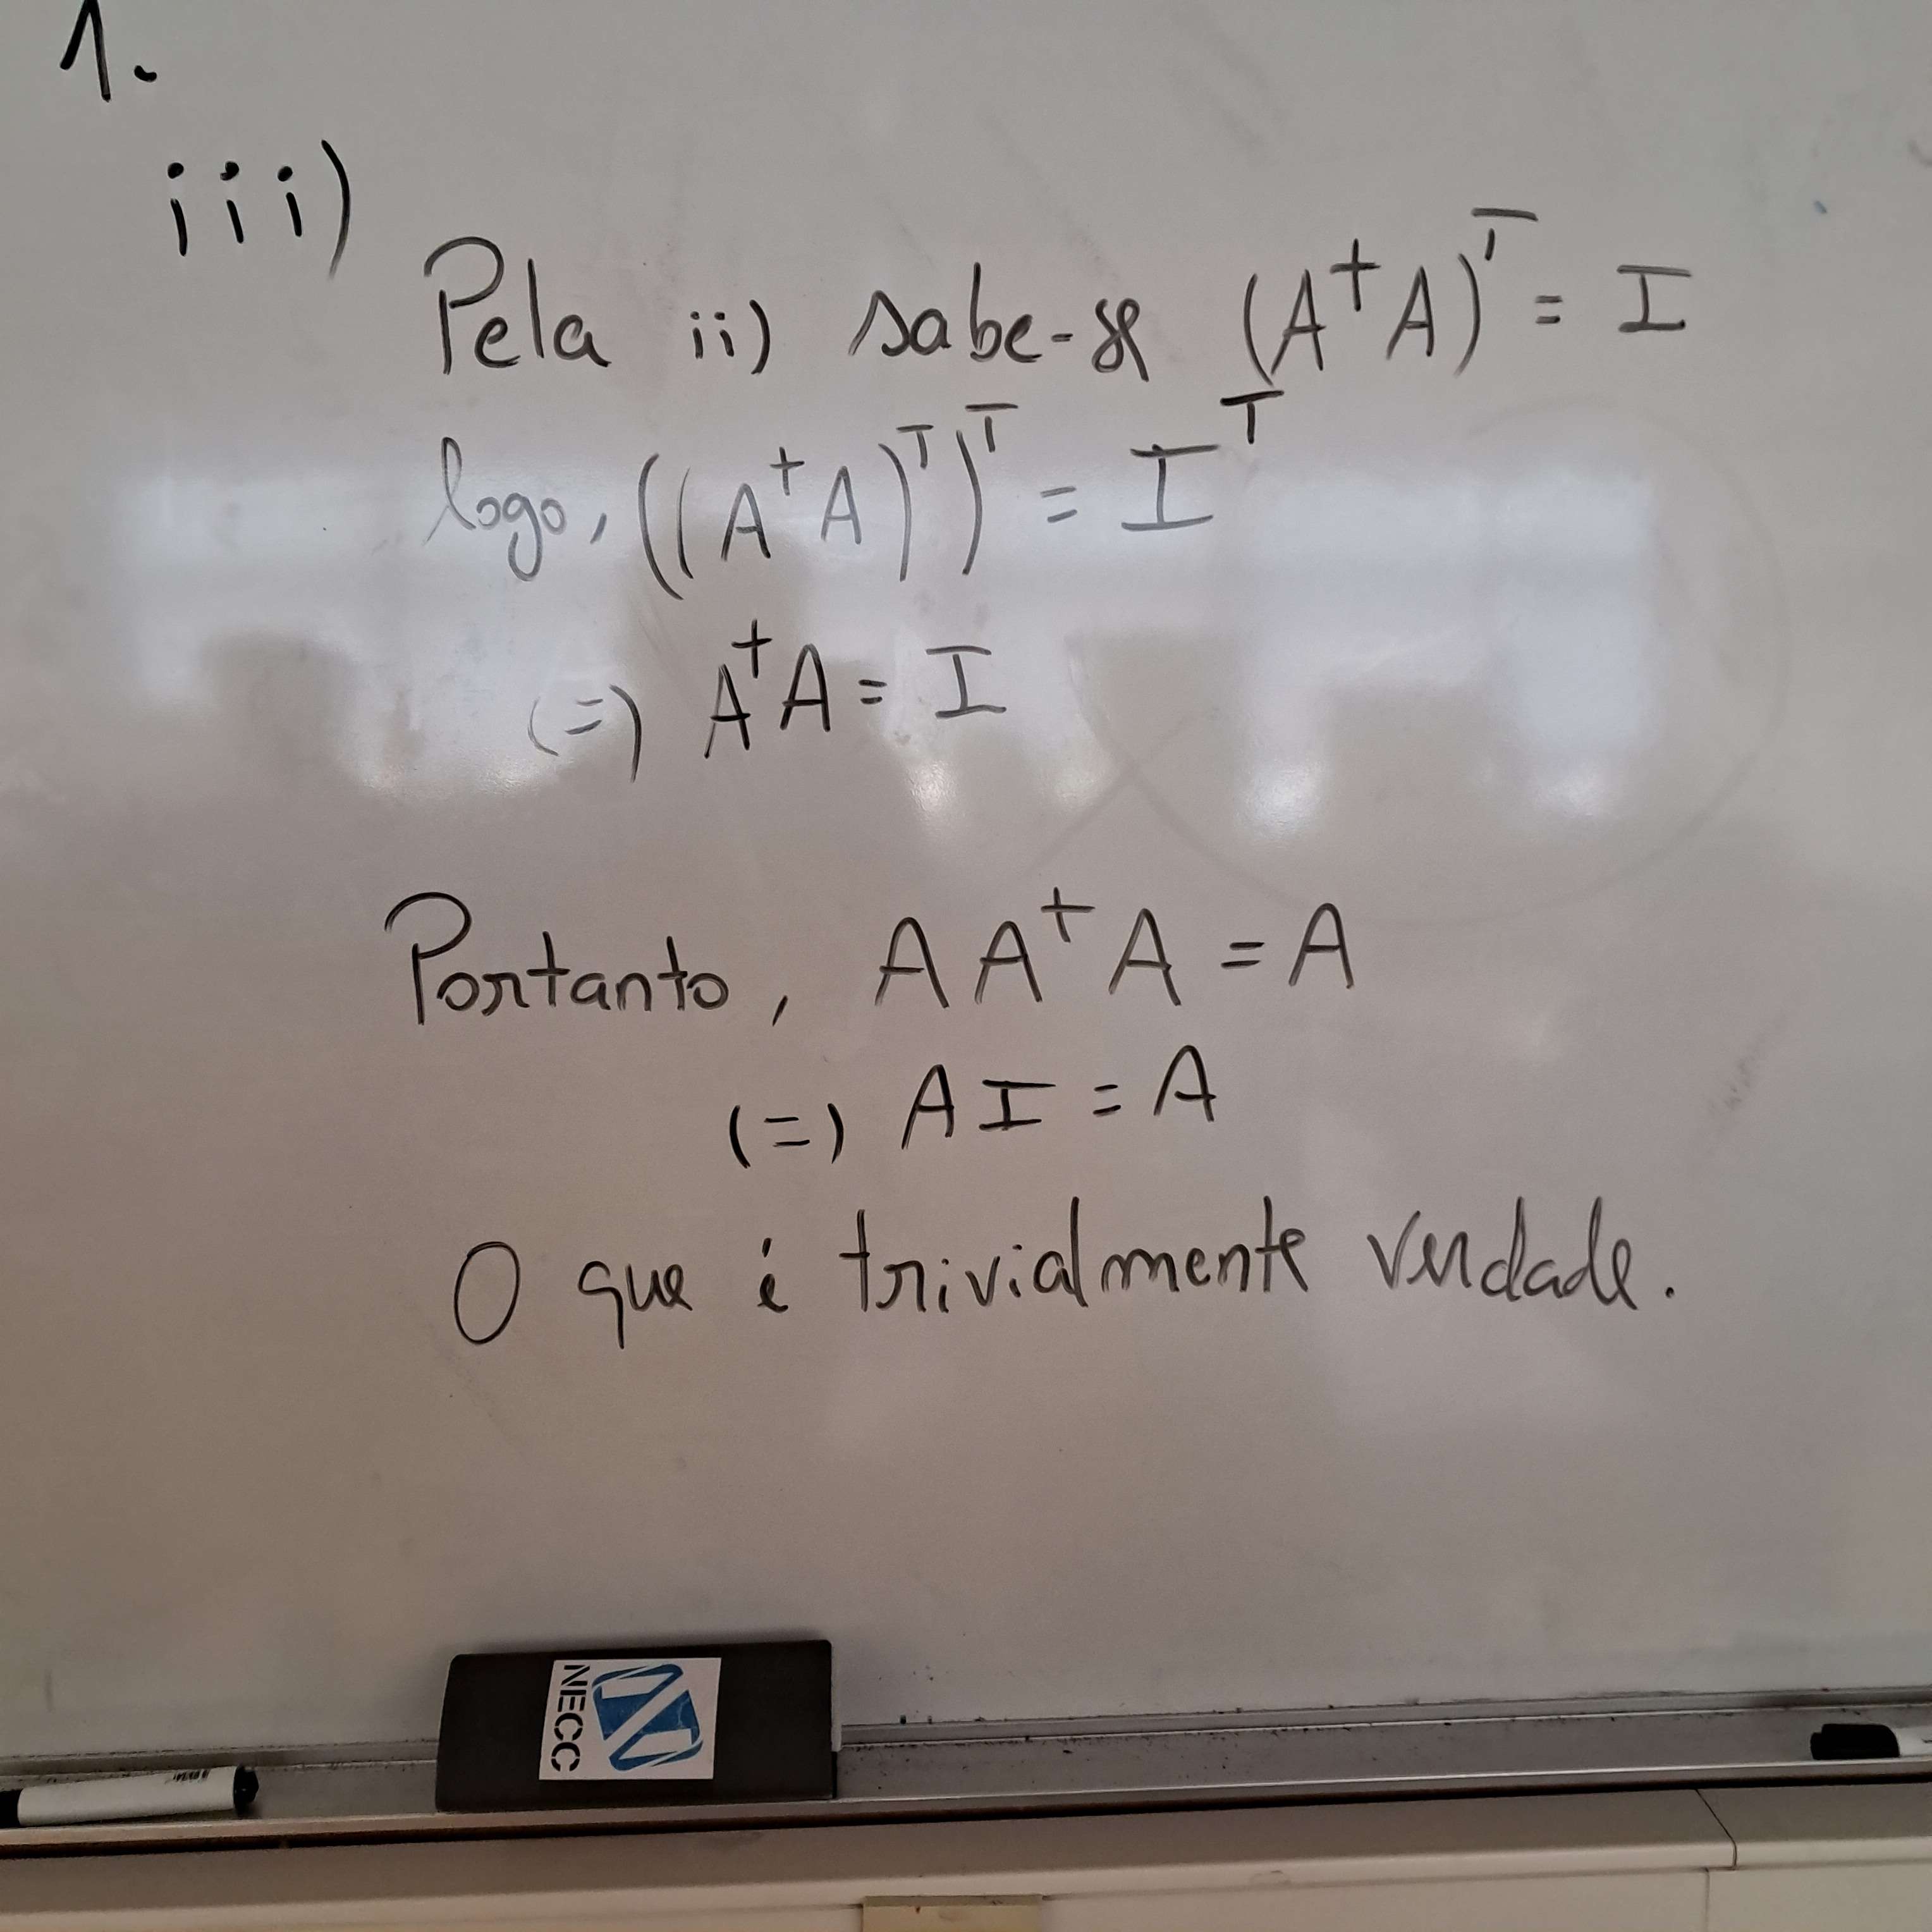 1.
iii)
Pela ii) sabe-se (A⁺A)ᵀ = I
logo, ((A⁺A)ᵀ)ᵀ = Iᵀ
(=) A⁺A = I
Portanto, AA⁺A = A
(=) AI = A
O que é trivialmente verdade.
NECC